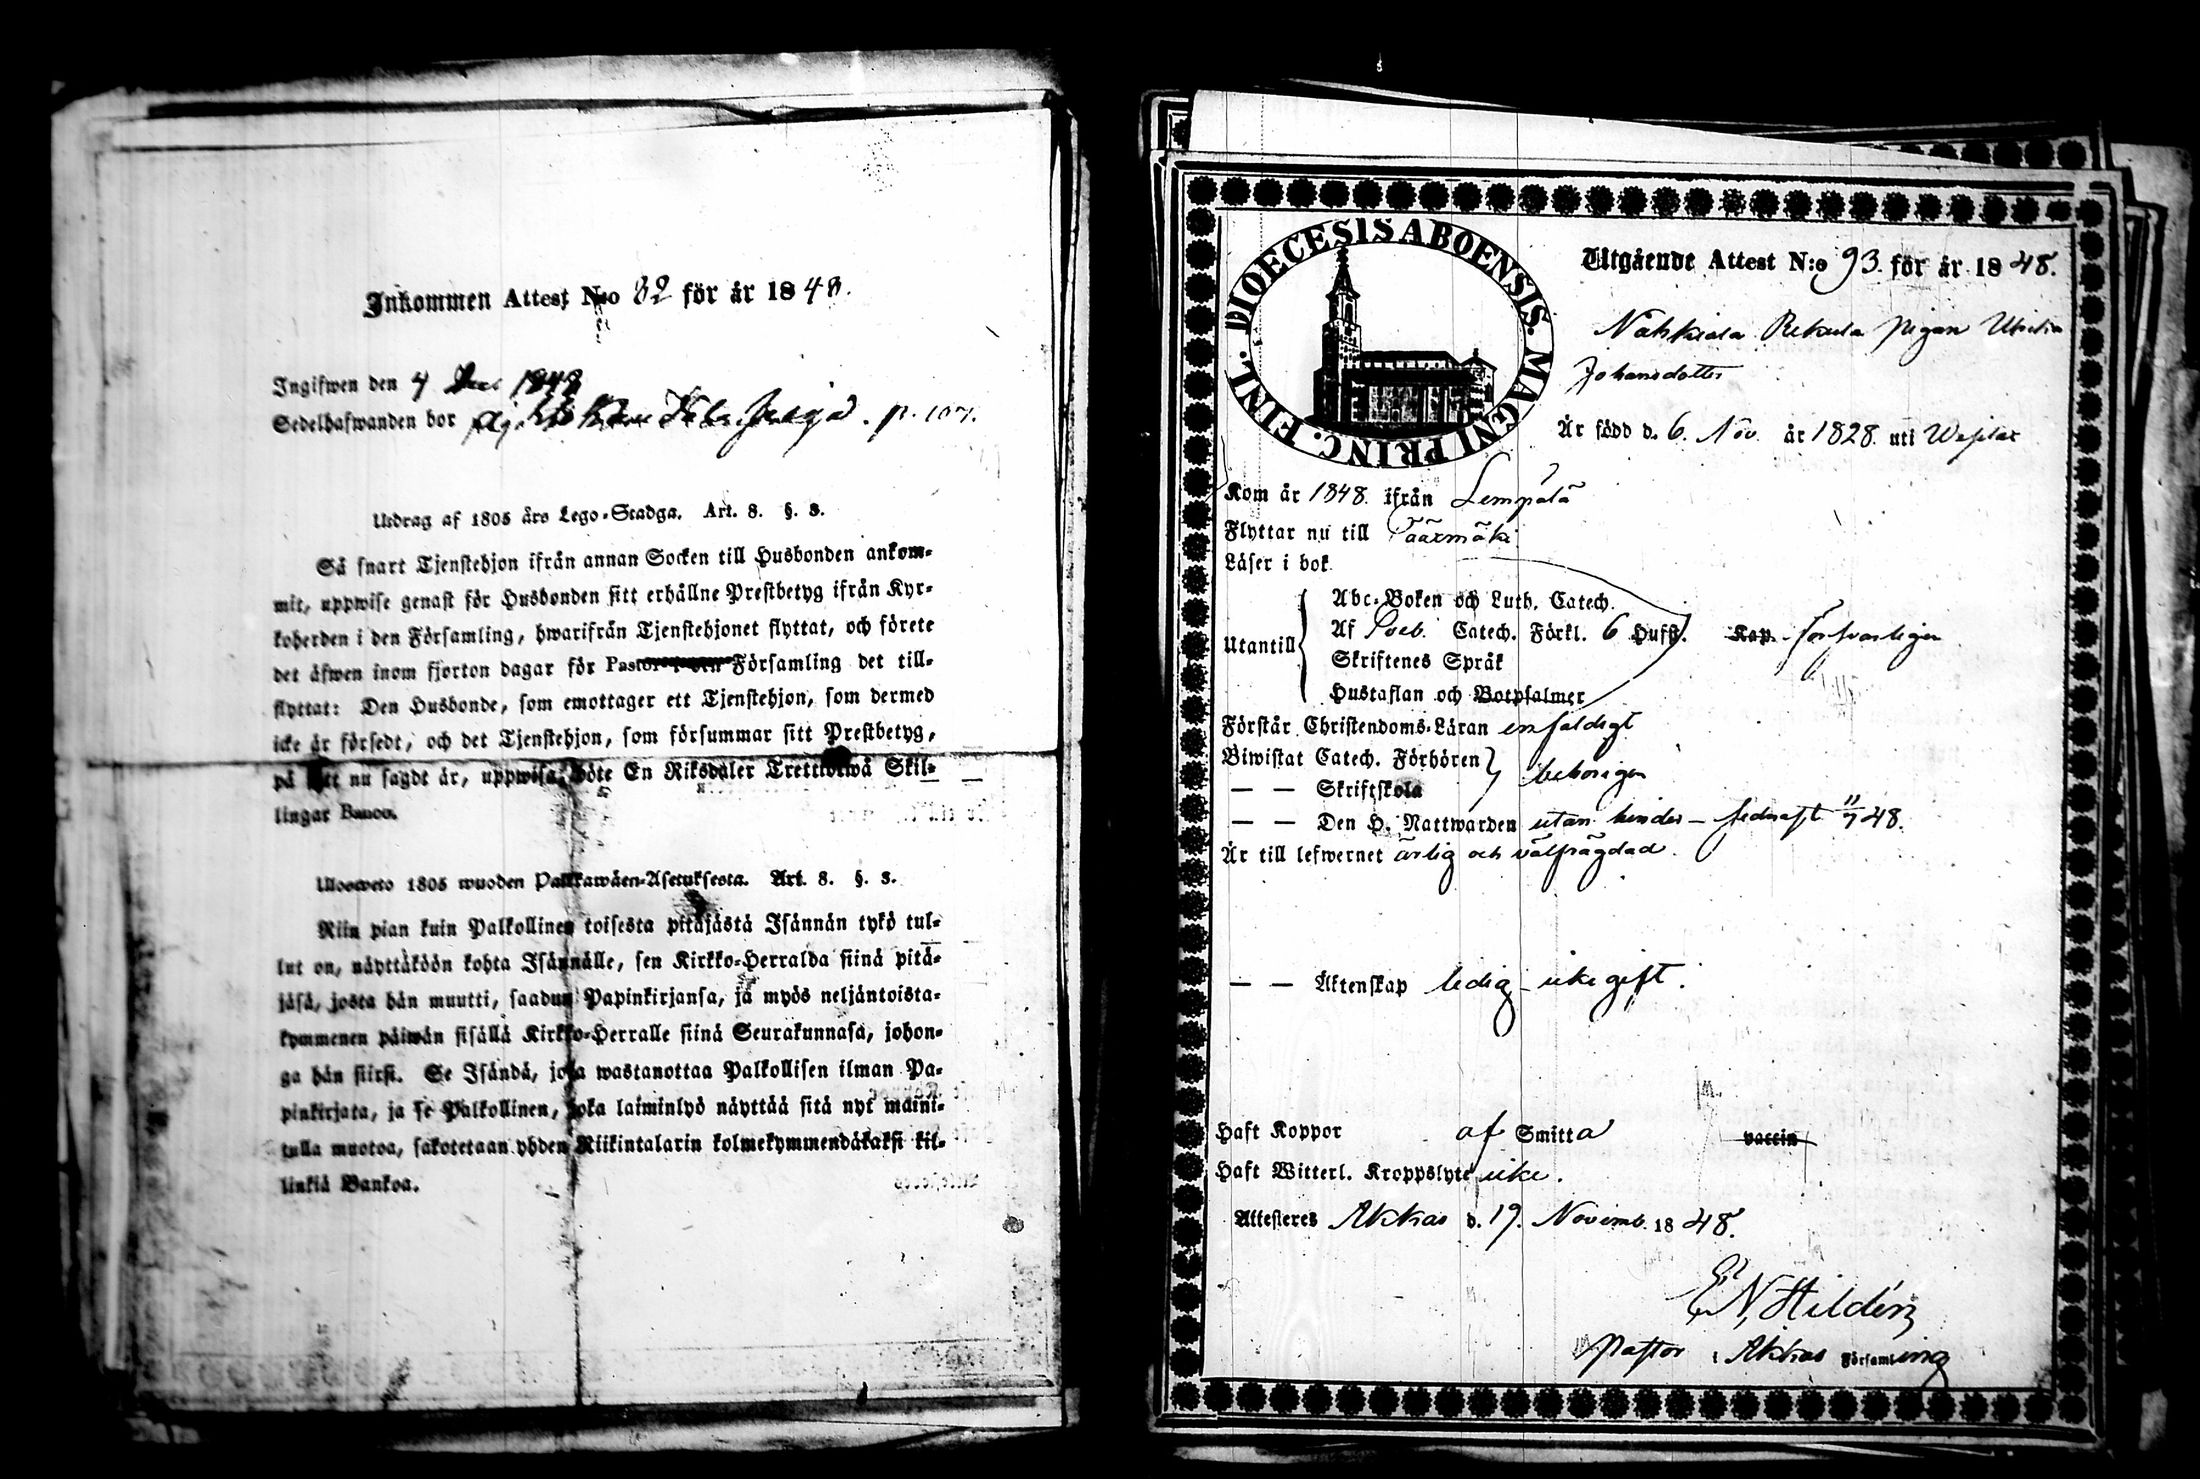 Inkommen Attest N:o 82 för år 1848.
Ingifwen den 4 Dec 1848
Sedelhafwanden bor p. 107.
Utdrag af 1805 års Lego-Stadga. Art. 8. §. 3.
Så snart Tjenstehjon ifrån annan Socken till Husbonden ankom-
mit, uppwise genast för Husbonden sitt erhållne Prestbetyg ifrån Kyr-
koherden i den Församling, hwarifrån Tjenstehjonet flyttat, och förete
det äfwen inom fjorton dagar för Pastor i den Församling det till-
flyttat: Den Husbonde, som emottager ett Tjenstehjon, som dermed
icke är försedt, och det Tjenstehjon, som försummar sitt Prestbetyg,
på sätt nu sagdt är, uppwisa, böte En Riksdaler Trettiotwå Skil-
lingar Banco.
Ulosweto 1805 wuoden Palkkawäen-Asetuksesta. Art. 8. §. 3.
Niin pian kuin Palkollinen toisesta pitäjästä Isännän tykö tul-
lut on, näyttäköön kohta Isännälle, sen Kirkko-Herralda siinä pitä-
jäsä, josta hän muutti, saadun Papinkirjansa, ja myös neljäntoista-
kymmenen päiwän sisällä Kirkko-Herralle siinä Seurakunnasa, johon-
ga hän siirsi. Se Isändä, joka wastanottaa Palkollisen ilman Pa-
pinkirjata, ja se Palkollinen, joka laiminlyö näyttää sitä nyt maini-
tulla muotoa, sakotetaan yhden Riikintalarin kolmekymmendäkaksi kil-
linkiä Bankoa.
DIOECESIS ABOENSIS. MAGNI PRINC. FINL.
Utgående Attest N:o 93. för år 1848.
Nahkiala Rekula pigan Ulrika
Johansdotter
Är född d. 6. Nov. år 1828. uti Wesilax
Kom år 1848. ifrån Lempälä
Flyttar nu till Säärmäki
Läser i bok
Utantill
Abc-Boken och Luth. Catech.
Af Sveb. Catech. Förkl. 6 Hufst. Kap. försvarligen
Skriftenes Språk
Hustaflan och Botpsalmer
Förstår Christendoms-Läran enfaldigt
Biwistat Catech. Förhören
— — Skriftskola behörigen
— — Den H. Nattwarden utan hinder - sednast 11/7 48.
Är till lefwernet ärlig och välfrägdad.
— — Äktenskap ledig - icke gift.
Haft Koppor af Smitta vaccin
Haft Witterl. Kroppslyte icke.
Attesteres Akkas d. 19. Novemb. 1848.
E N Hildén
Pastor i Akkas Församling